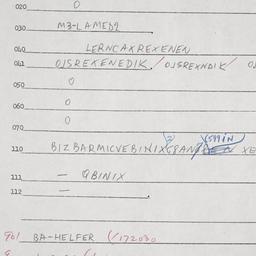 020 0
030 M3-LAMED2
040 LERNCAXREXENEN
041 OJSREXENEDIK / OJSREXNDIK / OJ
050 0
060 0
070 0
110 BIZBARMICVEBINIX
111 — GBINIX
112 —
901 BA-HELFER (/172030